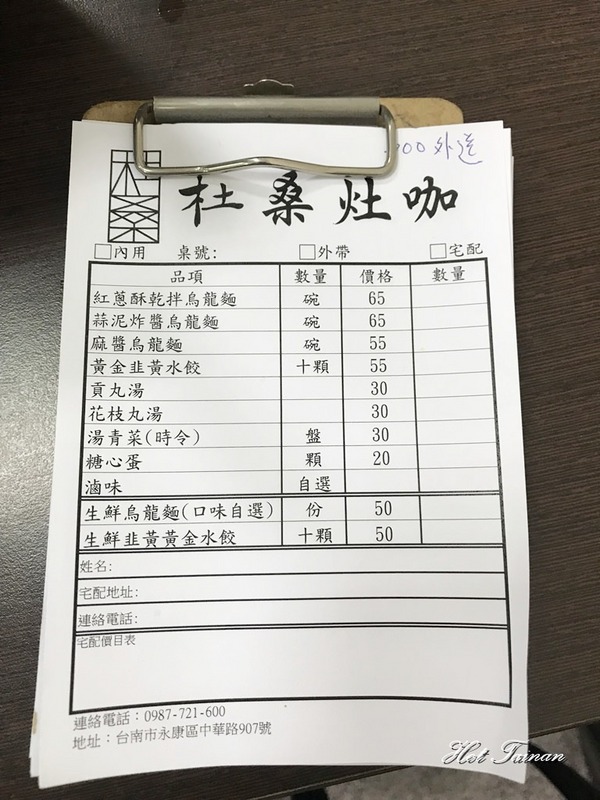 00外送
杜桑灶咖
內用 桌號: 外帶 宅配
品項 數量 價格 數量
紅蔥酥乾拌烏龍麵 碗 65
蒜泥炸醬烏龍麵 碗 65
麻醬烏龍麵 碗 55
黃金韭黃水餃 十顆 55
貢丸湯 30
花枝丸湯 30
湯青菜(時令) 盤 30
糖心蛋 顆 20
滷味 自選
生鮮烏龍麵(口味自選) 份 50
生鮮韭黃黃金水餃 十顆 50
姓名:
宅配地址:
連絡電話:
宅配價目表
連絡電話：0987-721-600
地址：台南市永康區中華路907號
Hot Tainan